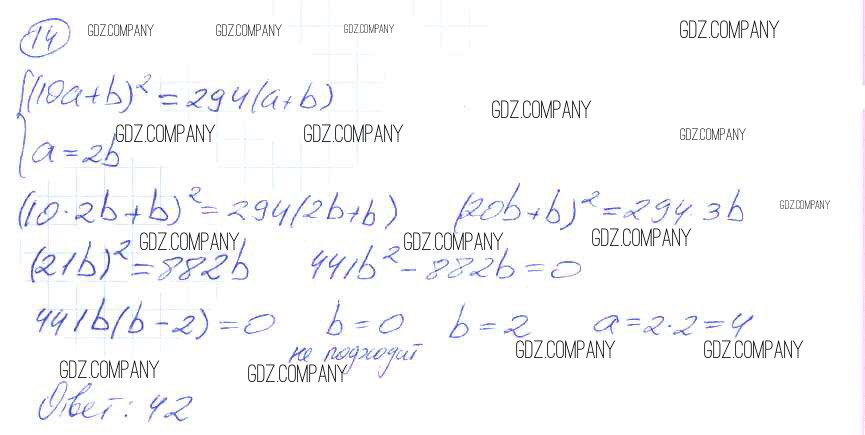 14 GDZ.COMPANY GDZ.COMPANY GDZ.COMPANY GDZ.COMPANY
(10a+b)² = 294(a+b) GDZ.COMPANY
GDZ.COMPANY GDZ.COMPANY GDZ.COMPANY
a = 2b
(10·2b+b)² = 294(2b+b) (20b+b)² = 294·3b GDZ.COMPANY
GDZ.COMPANY GDZ.COMPANY GDZ.COMPANY
(21b)² = 882b 441b² - 882b = 0
441b(b-2) = 0 b = 0 b = 2 a = 2·2 = 4
не подходит GDZ.COMPANY GDZ.COMPANY
GDZ.COMPANY GDZ.COMPANY
Ответ: 42